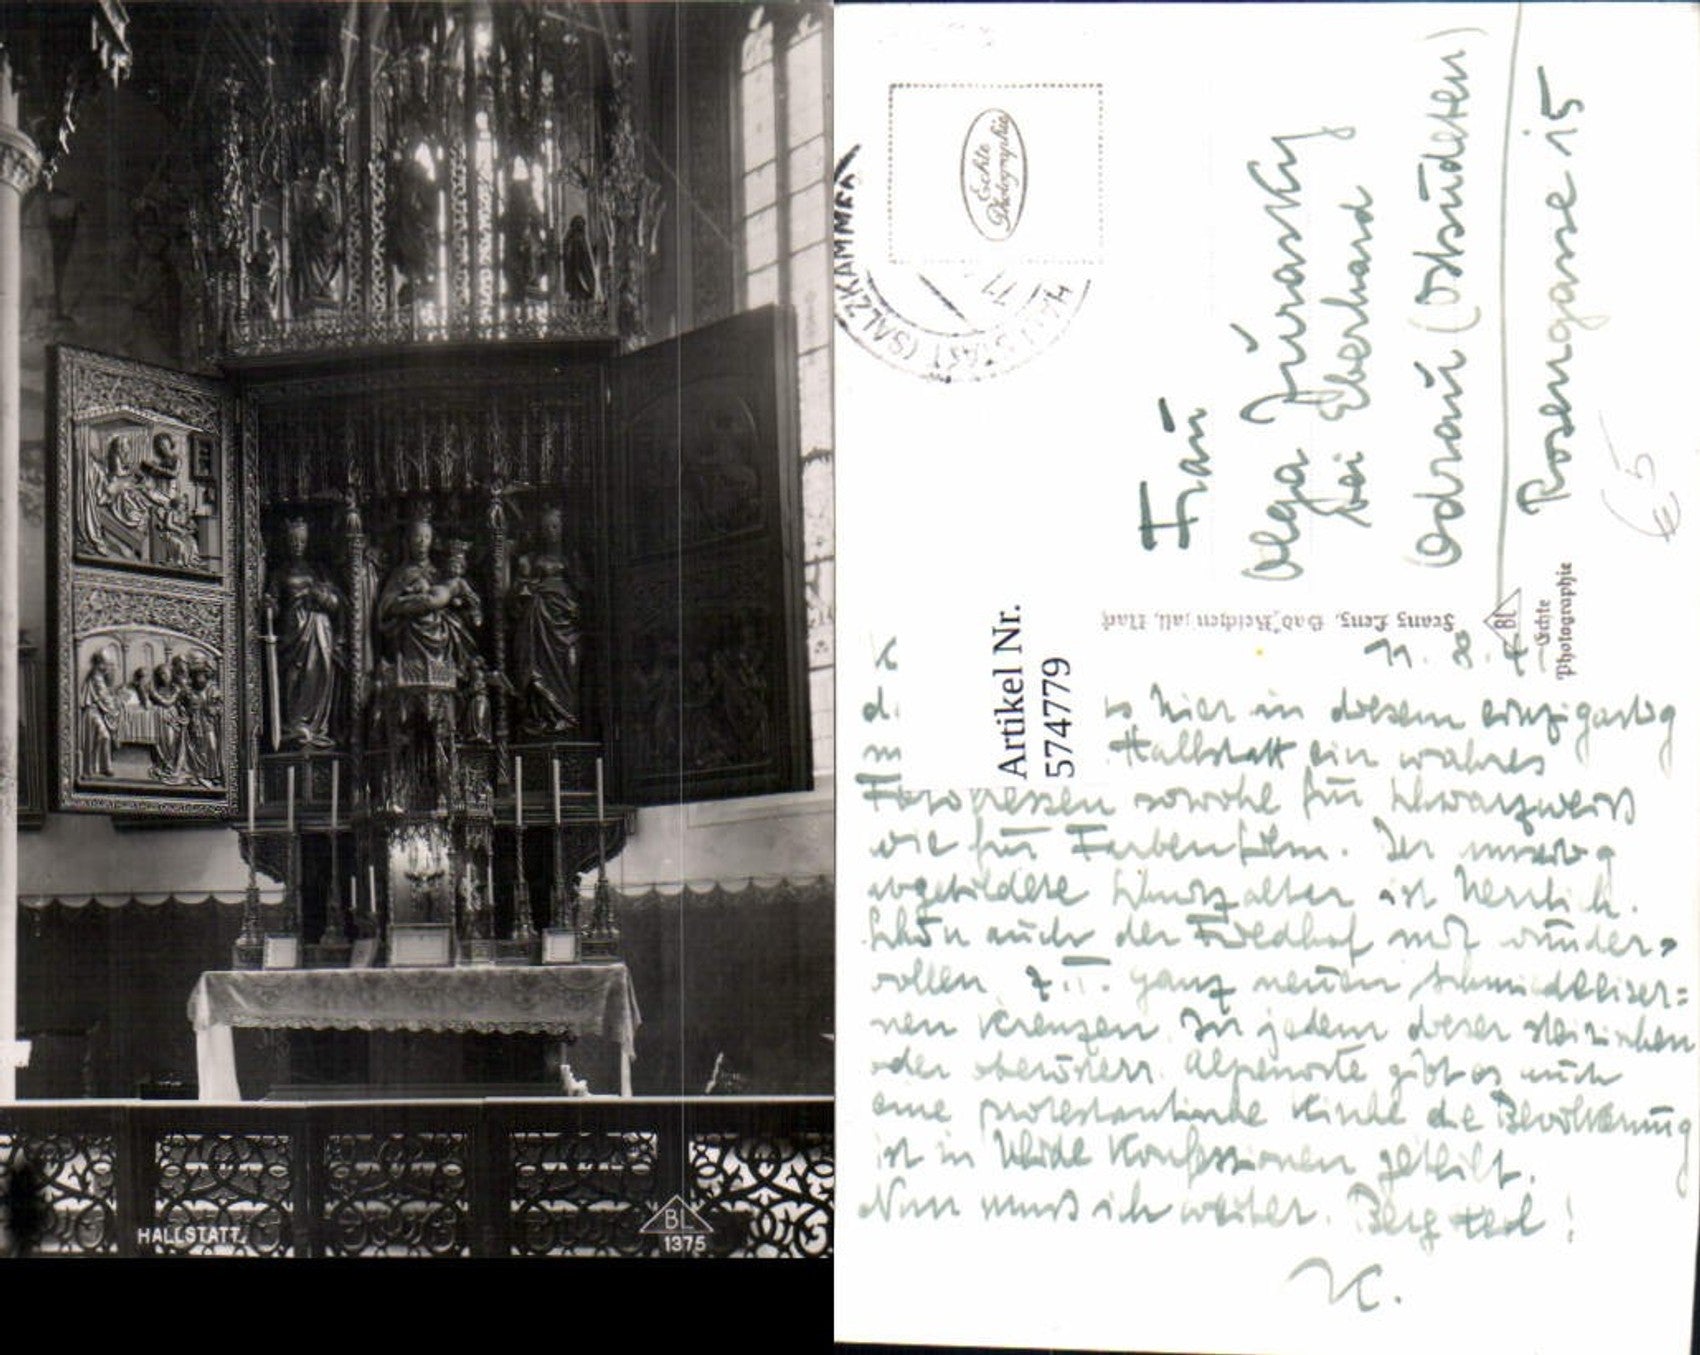 HALLSTATT.
BL
1375
Echte
Photographie
HALLSTATT (SALZKAMMER
Frau
Olga Jŭrasky
bei Eberhard
Odraŭ (Ostsŭdeten)
Rosengasse 15
€ 5
Artikel Nr.
574779
Franz Lenz, Bad Reichenhall,
BL
Echte
Photographie
11. 8. 4
d. es hier in diesem einzigartig
m Hallstatt ein wahres
Fotofressen sowohl für schwarzweiß
wie für Farbenfilm. Der umseitig
abgebildete Schnitzaltar ist herrlich.
Schön auch der Friedhof mit wunder=
vollen z. T. ganz neuen schmiedeeiser=
nen Kreuzen. In jedem dieser steirischen
oder oberösterr. Alpenorte gibt es auch
eine protestantische Kirche die Bevölkerung
ist in beide Konfessionen geteilt.
Nun muss ich weiter. Berg Heil!
K.